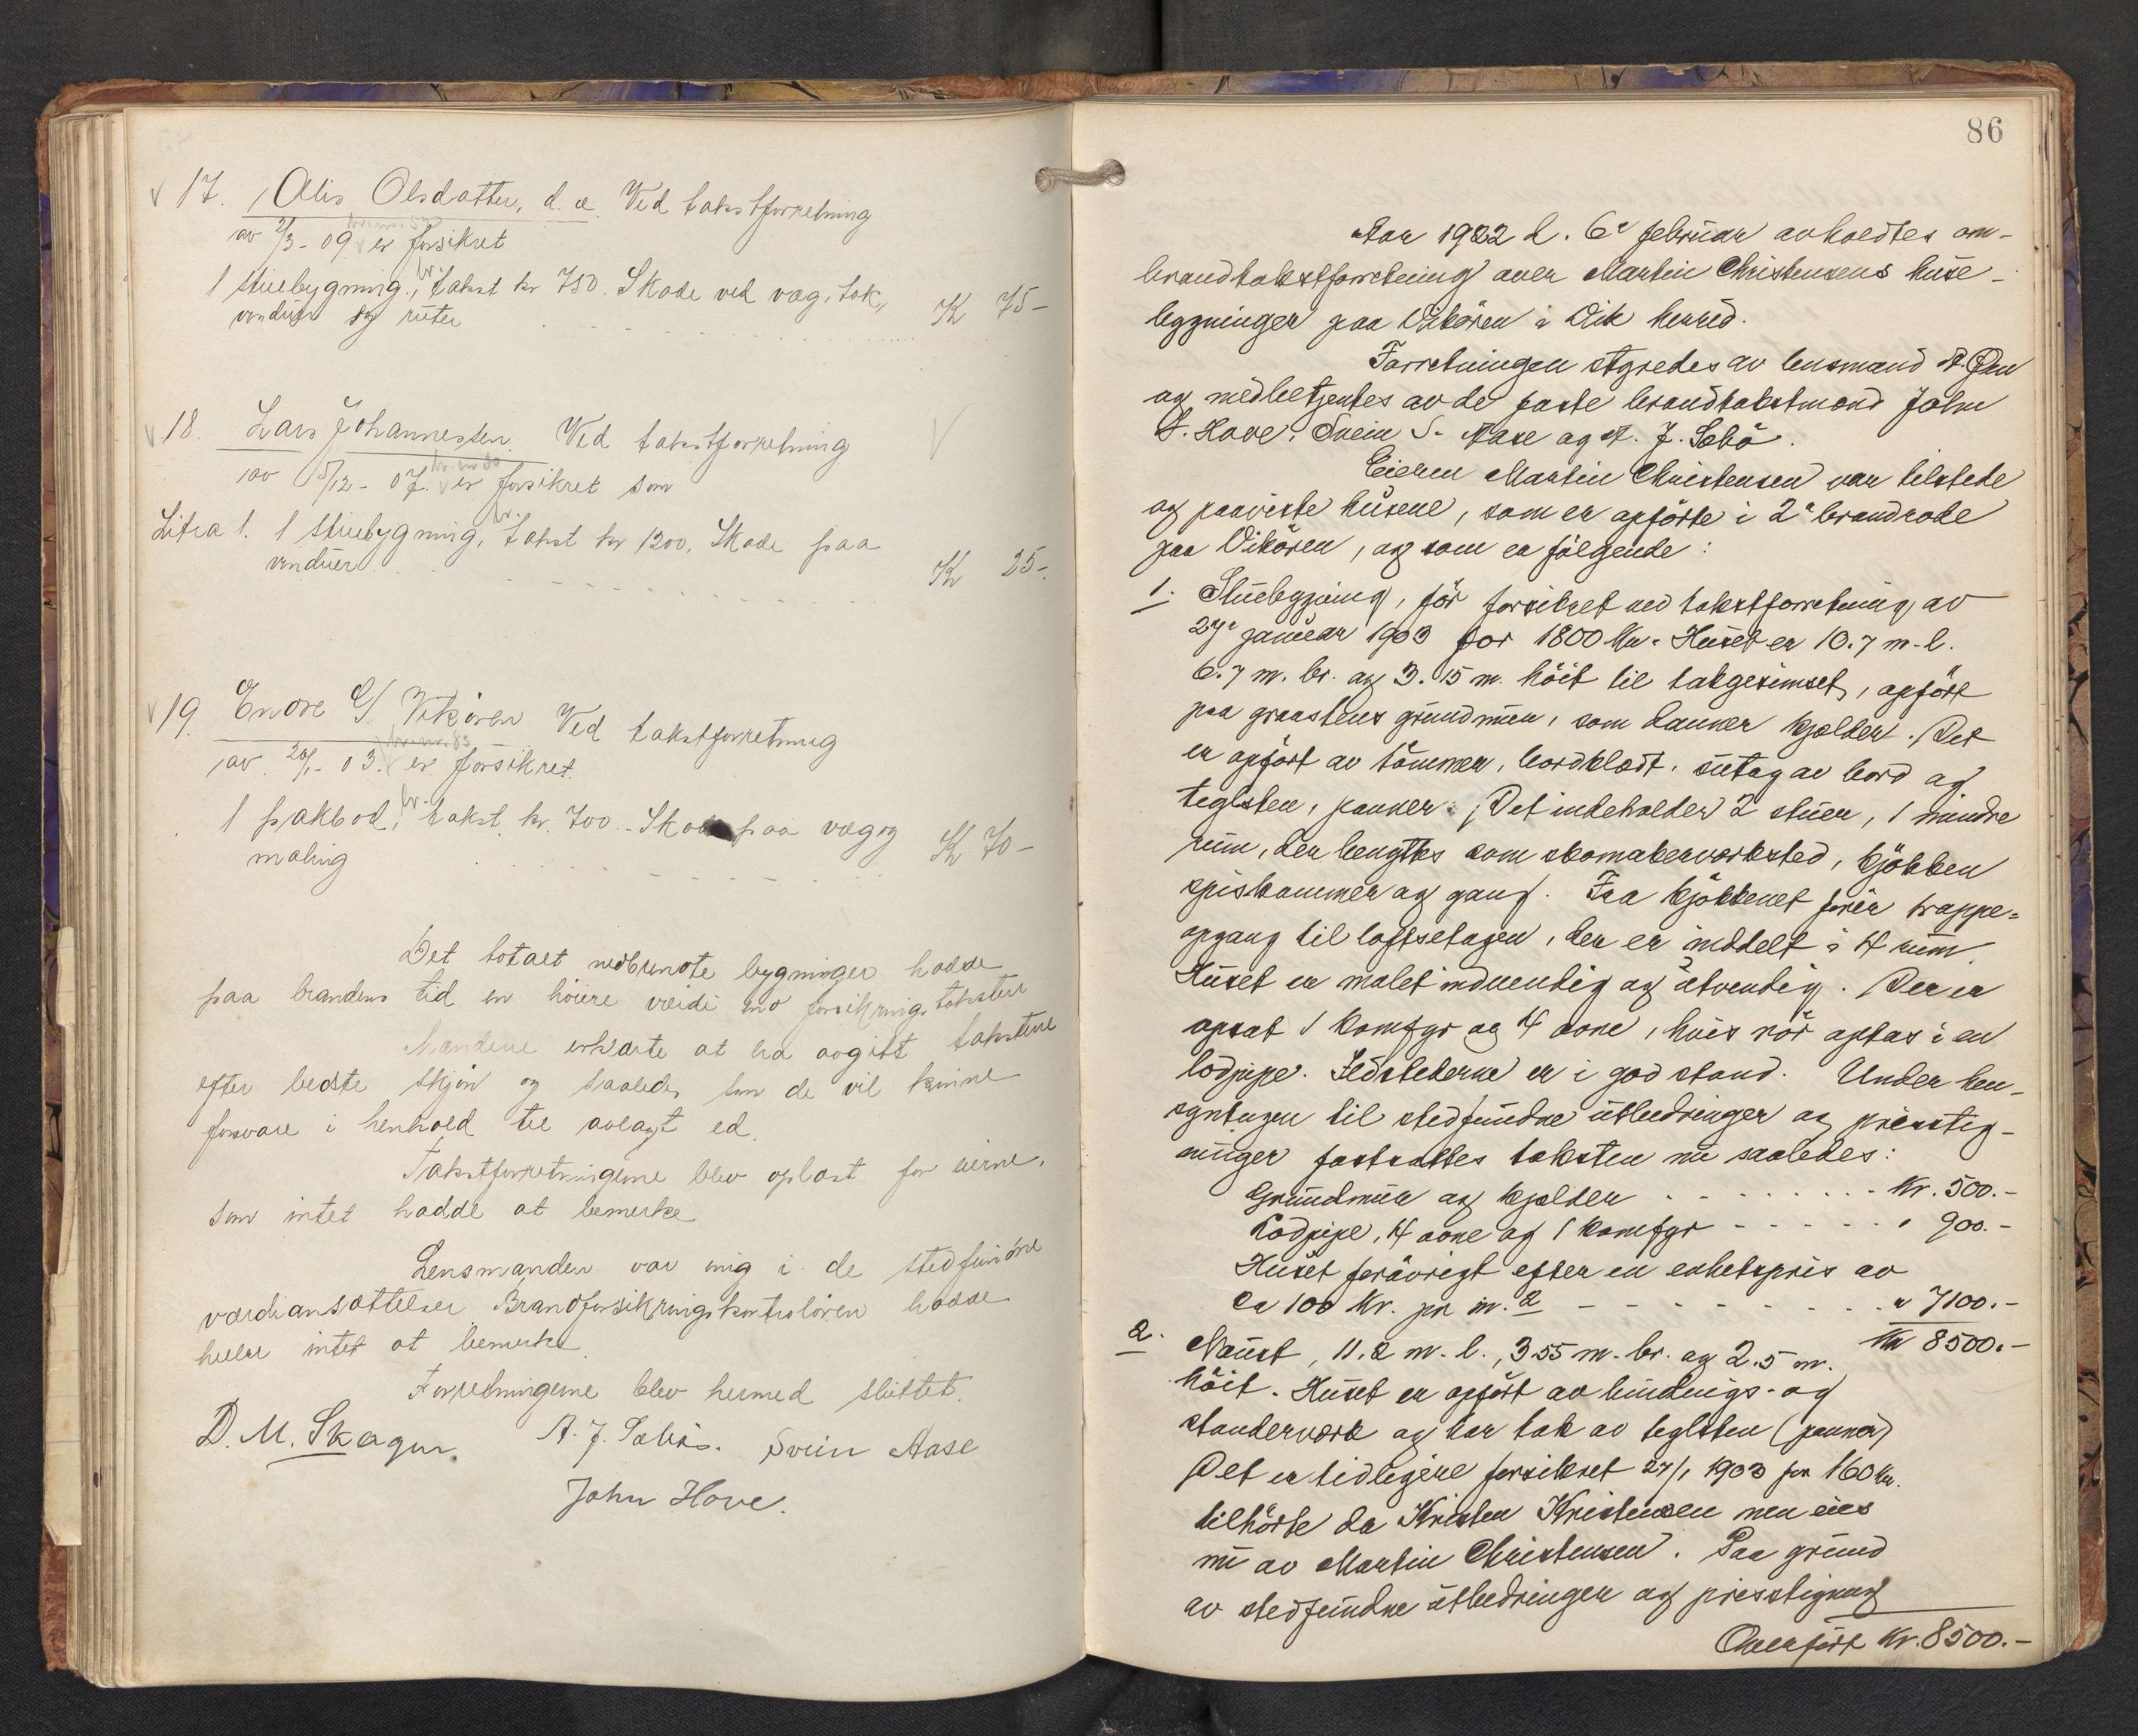 17. Olis Olsdatter, d. æ. Ved takstforretning
av 2/3 - 09 er forsikret
1 stuebygning, br. takst kr 750. Skade ved væg, tak,
vinduer og ruter Kr 75-
18. Lars Johannessen. Ved takstforretning
av 5/12 - 07. er forsikret som
Litra 1. 1 stuebygning, br. takst kr 1200, Skade paa
vinduer Kr 25-
19. Endre E/ Vikören Ved takstforretning
br.nr. 83
av 26/1 - 03. er forsikret.
1 pakbod, br. takst kr. 700.- Skade paa væg og
maling Kr 70-
Det totalt nedbrente bygninger hadde
paa brandens tid en höiere værdi end forsikringstaksten
Mændene erklærte at ha avgitt taksterne
efter bedste skjön og saaledes som de vil kunne
forsvare i henhold til avlagt ed.
Takstforretningerne blev oplæst for eierne,
som intet hadde at bemerke
Lensmanden var enig i de stedfundne
værdiansættelser Brandforsikringskontrolören hadde
heller intet at bemerke
Forretningerne blev hermed sluttet.
D. M. Skagen. A. J. Sæbö. Svein Aase
John Hove.
86
Aar 1922 d. 6e februar avholdtes om-
brandtakstforretning over Martin Christensens huse-
bygninger paa Vikören i Vik herred.
Forretningen styredes av lensmand
og medbetjentes av de faste brandtakstmænd John
S. Hove, Svein S. Aase og A. J. Sæbö.
Eieren Martin Christensen var tilstede
og paaviste husene, som er opförte i 2e brandrode
paa Vikören, og som er fölgende:
1. Stuebygning, för forsikret ved takstforretning av
27e januar 1903 for 1800 Kr. Huset er 10.7 m. l.
6.7 m. br. og 3.15 m. höit til takgesimset, opfört
paa graastens grundmur, som danner kjælder. Det
er opfört av tömmer, bordklædt, uttag av bord og
teglsten, panner. Det indeholder 2 stuer, 1 mindre
rum, der benyttes som skomakerverksted, kjökken
spiskammer og gang. Fra kjökkenet förer trappe-
opgang til loftsetagen, der er inddelt i 4 rum.
Huset er malet indvendig og utvendig. Der er
opsat 1 komfyr og 4 ovne, hvis rör optas i en
lodpipe. Ildstederne er i god stand. Under hen-
syntagen til stedfundne utbedringer og prisstig-
ninger fastsattes taksten nu saaledes:
Grundmur og kjælder - - - - - - - - Kr. 500.-
Lodpipe, 4 ovne og 1 komfyr - - - - - " 900.-
Huset forövrigt efter en enhetspris av
ca 100 Kr. pr m.2 - - - - - - - - " 7100.-
Kr 8500.-
2. Naust, 11.2 m. l., 3.55 m. br. og 2.5 m.
höit. Huset er opfört av bindings- og
standerværk og har tak av teglsten (panner)
Det er tidligere forsikret 27/1 1903 for 160 Kr.
tilhörte da Kristen Kristensen men eies
nu av Martin Christensen. Paa grund
av stedfundne utbedringer og prisstigning
Overfört Kr. 8500.-